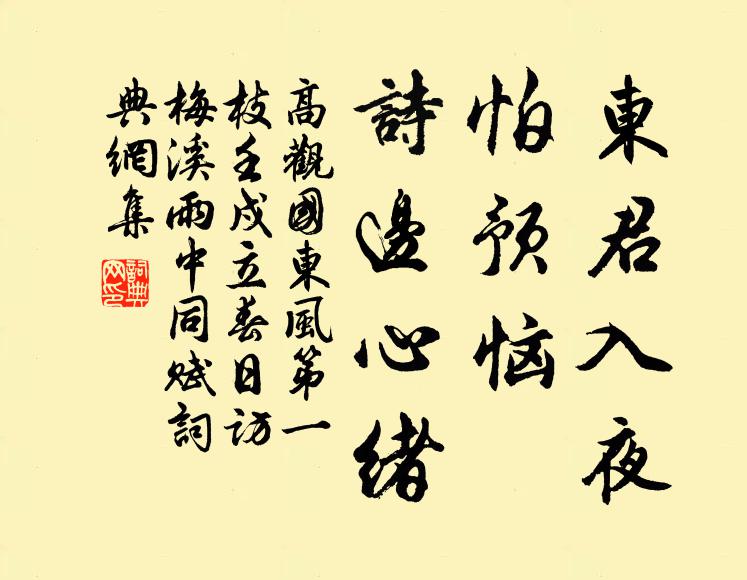 東君入夜
怕預恼
詩邊心緒
高觀國東風第一
枝壬戌立春日訪
梅溪雨中同赋詞
典網集
詞典
网印